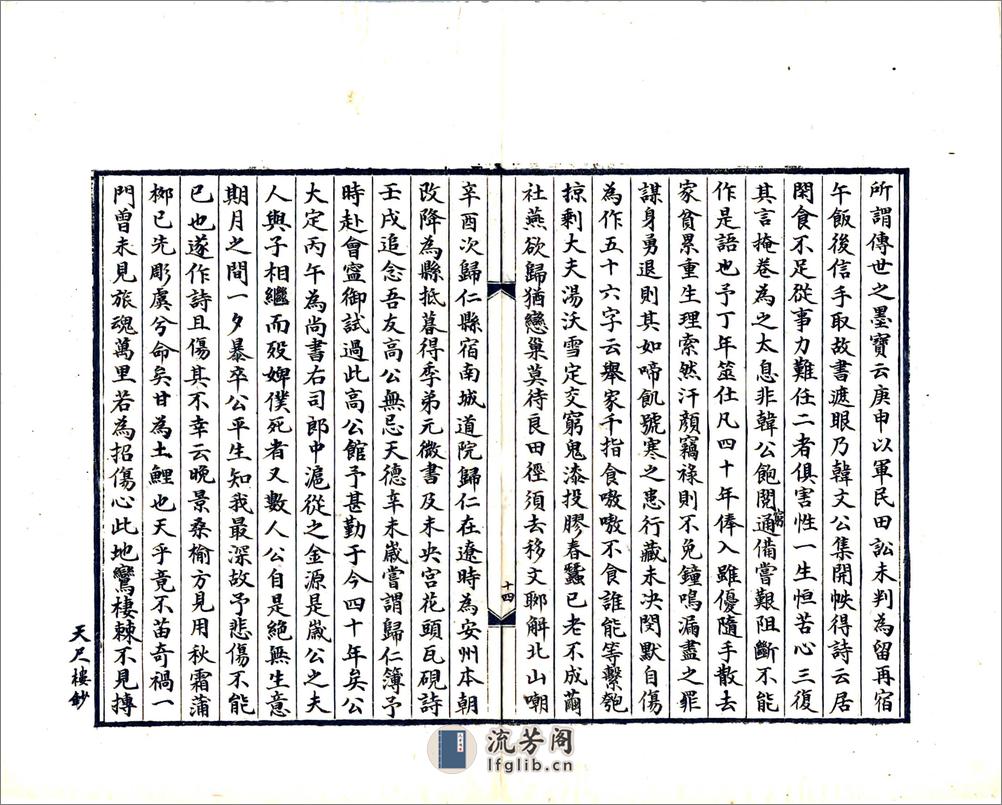 所謂傳世之墨寶云庚申以軍民田訟未判為留再宿
午飯後信手取故書遮眼乃韓文公集開帙得詩云居
閑食不足從事力難任二者俱害性一生恒苦心三復
其言掩卷為之太息非韓公飽閱通備嘗艱阻斷不能
窮
作是語也予丁年筮仕凡四十年俸入雖優隨手散去
家貧累重生理索然汗顏竊祿則不免鐘鳴漏盡之罪
謀身勇退則其如啼飢號寒之患行藏未決閔默自傷
為作五十六字云舉家千指食嗷嗷不食誰能等繫匏
掠剩大夫湯沃雪定交窮鬼漆投膠春蠶已老不成繭
社燕欲歸猶戀巢莫待良田徑須去移文聊解北山嘲
十四
辛酉次歸仁縣宿南城道院歸仁在遼時為安州本朝
改降為縣抵暮得季弟元微書及未央宮花頭瓦硯詩
壬戌追念吾友高公無忌天德辛未歲嘗謂歸仁簿予
時赴會寧御試過此高公館予甚勤于今四十年矣公
大定丙午為尚書右司郎中滬從之金源是歲公之夫
人與子相繼而歿婢僕死者又數人公自是絕無生意
期月之間一夕暴卒公平生知我最深故予悲傷不能
已也遂作詩且傷其不幸云晚景桑榆方見用秋霜蒲
柳已先彫虞兮命矣甘為土鯉也天乎竟不苗奇禍一
門曾未見旅魂萬里若為招傷心此地鸞棲棘不見摶
天尺樓鈔
流芳阁
lfglib.cn